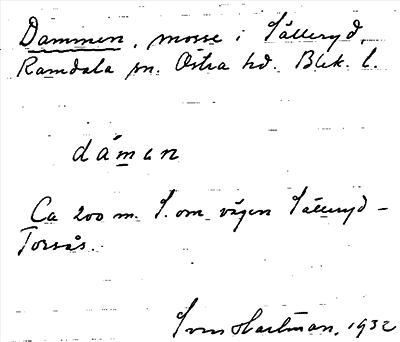 Dammen, mosse i Sälleryd,
Ramdala sn. Östra hd. Blek. l.
dáman
Ca 200 m. S. om vägen Sälleryd -
Torsås.
Sven Hartman, 1932